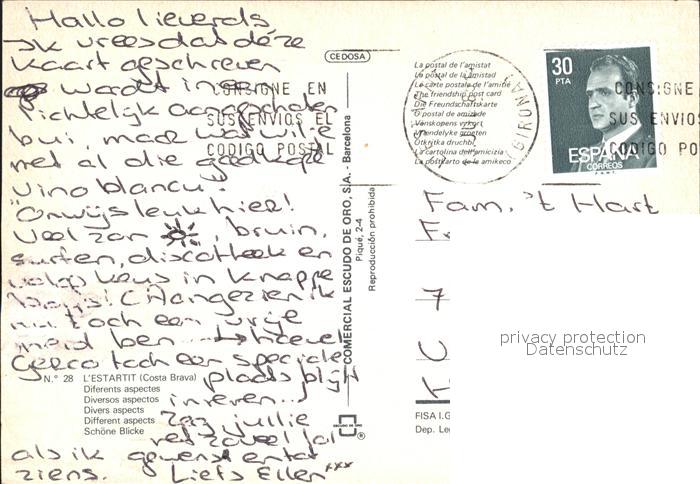 Hallo lieverds
Ik vrees dat deze
kaart geschreven
wordt in een
lichtelijk aangeschoten
bui, maar wat wil je
met al die goedkope
vino blanco!
Onwijs leuk hier!
Veel zon, bruin,
surfen, discotheek en
volop keus in knappe
boys! (Aangezien ik
nu toch een vrije
meid ben → hoewel
Gerco toch een speciale
plaats blijft
inneren...)
jullie
net zoveel lol
als ik gewenst en tot
ziens. Liefs Ellen xxx
CEDOSA
COMERCIAL ESCUDO DE ORO, S.A. - Barcelona
Piqué, 2-4
Reproducción prohibida
N.° 28 L'ESTARTIT (Costa Brava)
Diferents aspectes
Diversos aspectos
Divers aspects
Different aspects
Schöne Blicke
ESCUDO DE ORO
®
CONSIGNE EN
SUS ENVIOS EL
CODIGO POSTAL
La postal de l'amistat
La postal de la amistad
La carte postale de l'amitié
The friendship post card
Die Freundschaftskarte
O postal de amizade
Vänskapens vykort
Vriendelyke groeten
Otkritka druchbi
La cartolina dell'amicizia
La postkarto de la amikeco
(GIRONA)
30
PTA
ESPAÑA
CORREOS
CONSIGNE
SUS ENVIOS
CODIGO PO
Fam. 't Hart
F.
7
K C
FISA I.G
Dep. Le
privacy protection
Datenschutz